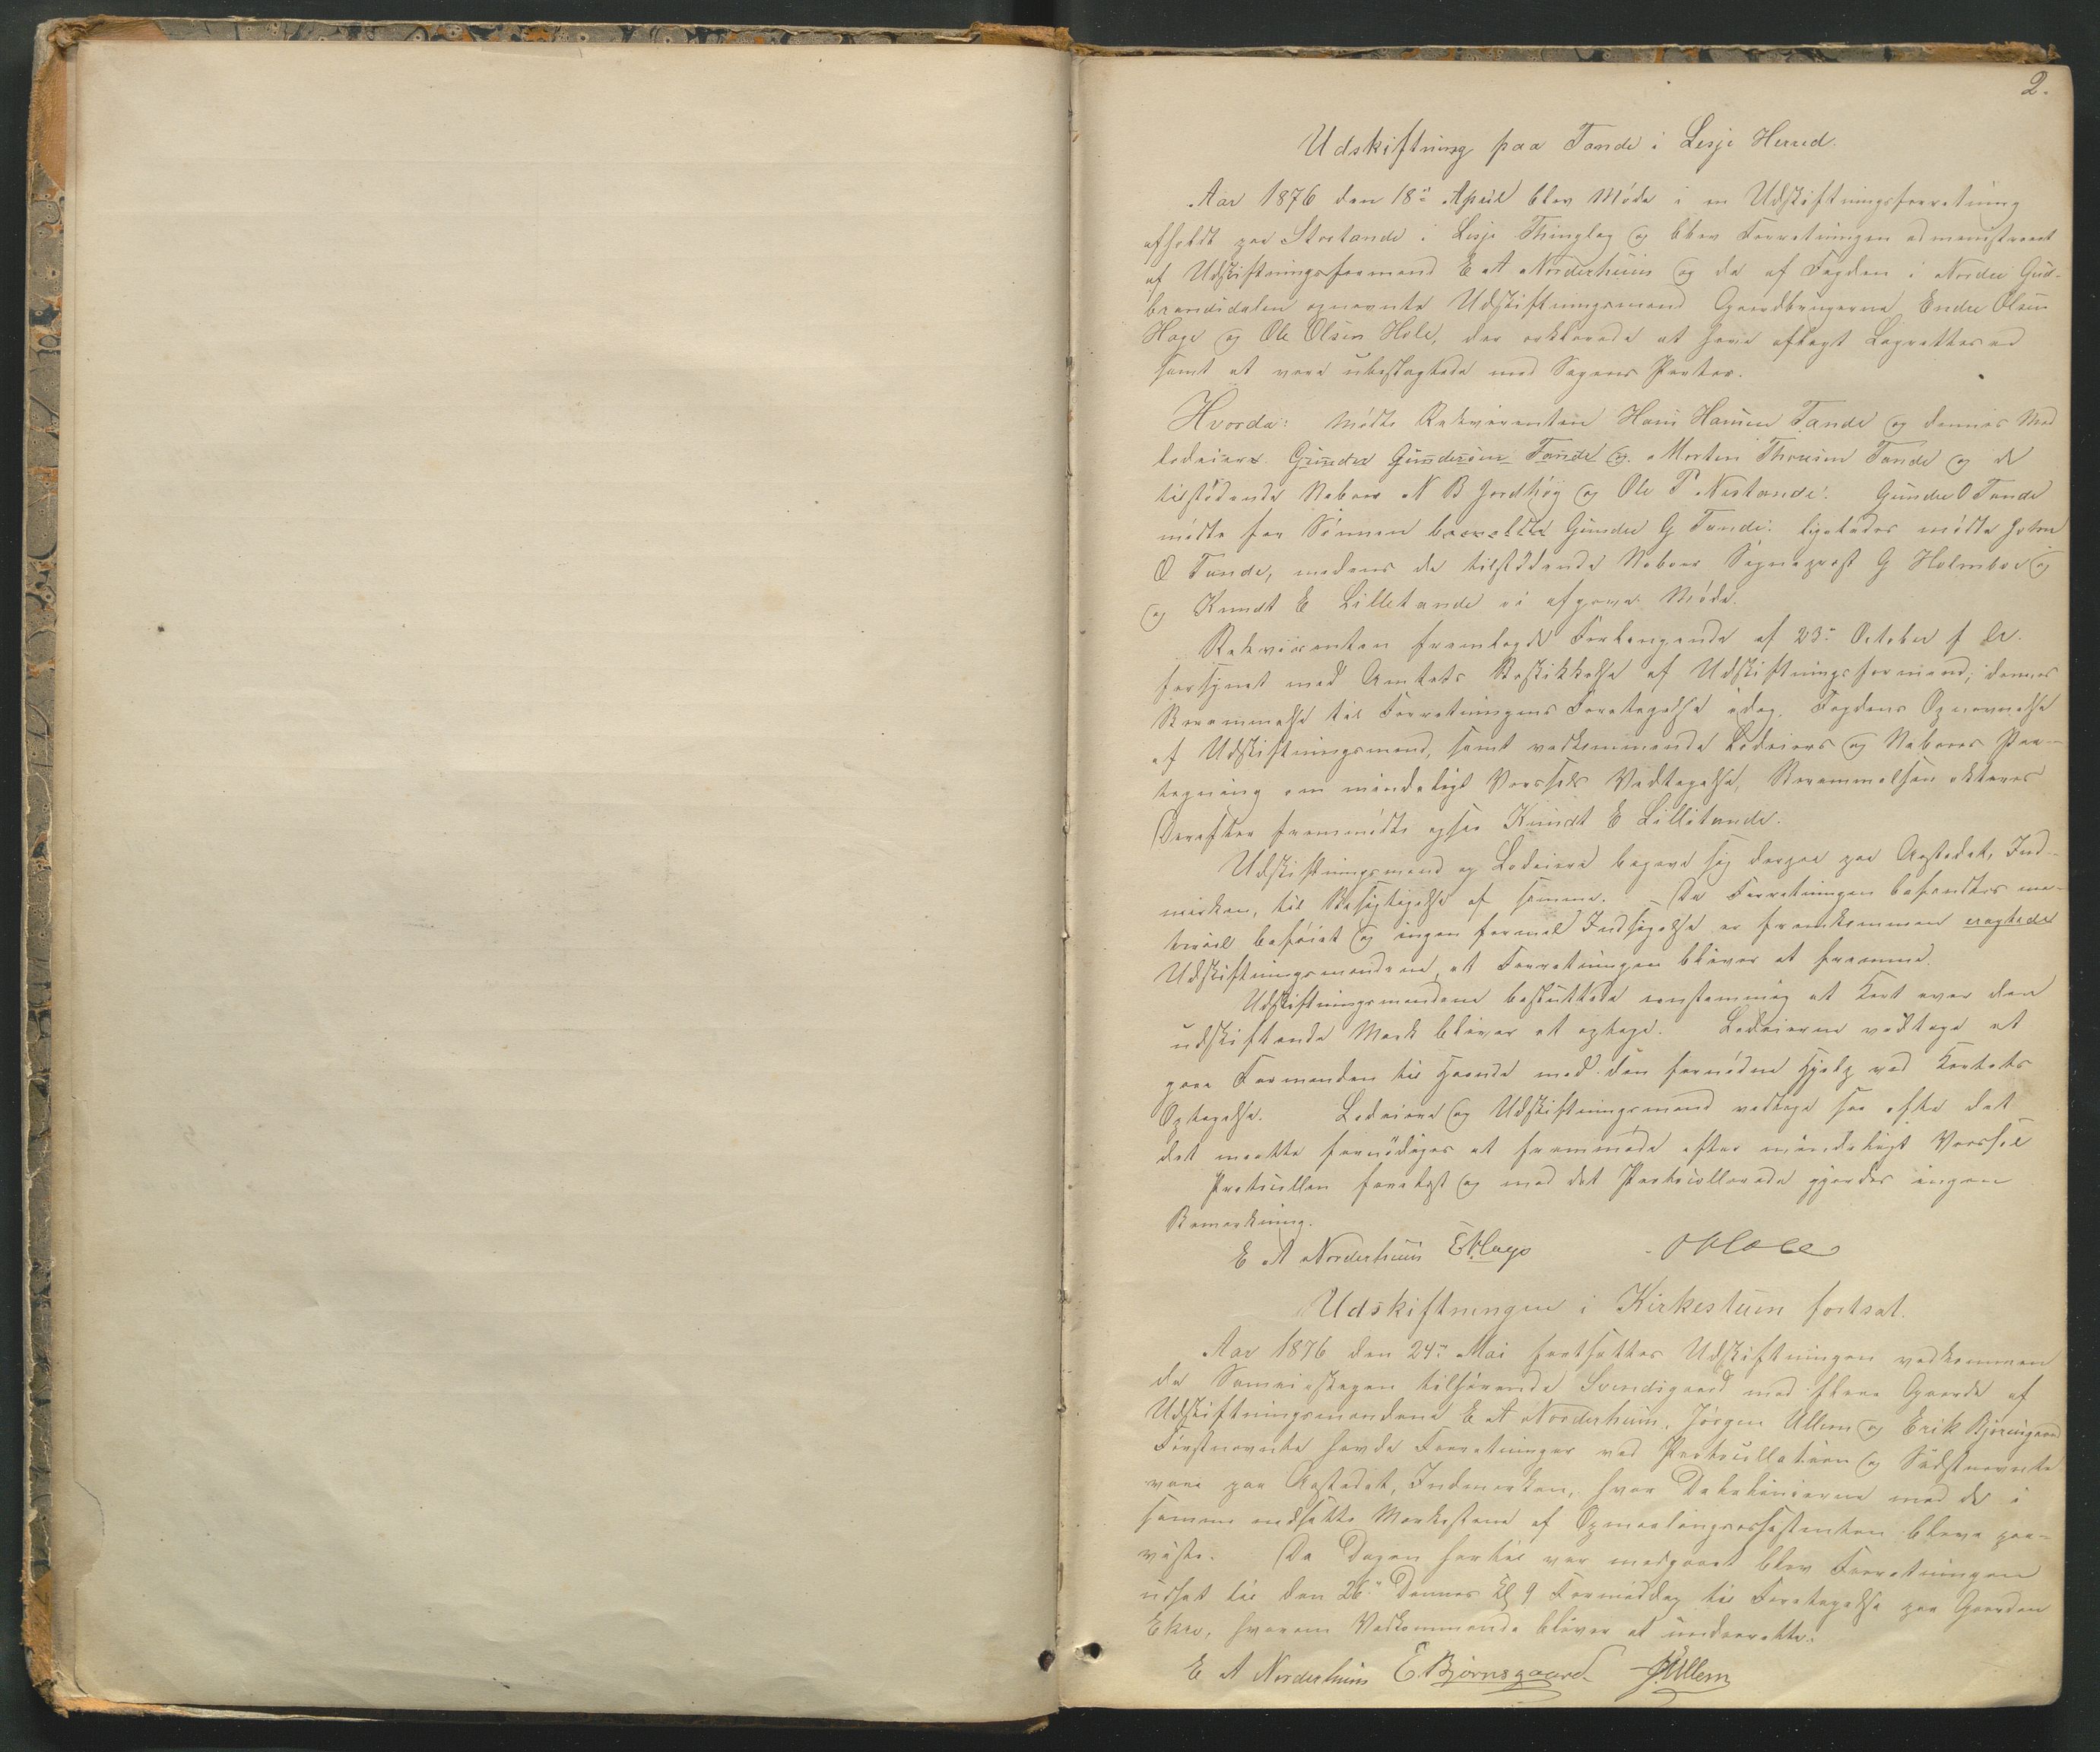 2.
Udskiftning paa Tande i Lesje Herred.
Aar 1876 den 18de April blev Møde i en Udskiftningsforretning
afholdt paa Stortande i Lesje Thinglag og blev Forretningen administreret
af Udskiftningsformand E A Norderhuus og de af Fogden i Nordre Gud-
brandsdalen opnævnte Udskiftningsmænd Gaardbrugerne Endre Olsen
Hage og Ole Olsen Hole, der erklærede at have aflagt Lagretteseed
samt at være ubeslægtede med Sagens Parter.
Hvorda: mødte Rekvirenten Hans Hansen Tande og dennes Med
lodeiere Gunder Gundersen Tande og Morten Thoresen Tande og de
tilstødende Naboer N B Jordhøy og Ole P Nestande. Gunder O Tande
mødte for Sønnen bemeldte Gunder G Tande. ligeledes mødte John
O Tande, medens de tilstødende Naboer Sogneprest G Holmboe og
og Knudt E Lilletande ei afgave Møde.
Rekvirenten fremlagde Forlangende af 23de October f Ar.
forsynet med Amtets Beskikkelse af Udskiftningsformand, dennes
Berammelse til Forretningens Foretagelse idag, Fogdens Opnævnelse
af Udskiftningsmænd, samt vedkommende Lodeiers og Naboers Paa-
tegning om mundtligt Varsels Vedtagelse, Berammelsen akteres
Derefter fremmødte ogsaa Knudt E Lilletande.
Udskiftningsmænd og Lodeiere begave sig derpaa paa Aastedet, Ind-
marken, til Besigtigelse af samme. Da Forretningen befandtes ma-
teriel beføiet og ingen formel Indsigelse er fremkommen eragtede
Udskiftningsmændene, at Forretningen bliver at fremme.
Udskiftningsmændene besluttede eenstemmig at Kart over den
udskiftende Mark bliver at optage. Lodeierne vedtoge at
gaae Formanden til Haande med den fornødne Hjelp ved Kartets
Optagelse. Lodeiere og Udskiftningsmænd vedtoge saa ofte det
det maatte fornødiges at fremmøde efter mundtligt Varsel
Protocollen forelæst og mod det Protocollerede gjordes ingen
Bemærkning.
E A Norderhuus E Hage O Hole
Udskiftningen i Kirkestuen fortsat.
Aar 1876 den 24de Mai fortsattes Udskiftningen vedkommen
de Sameieskogen tilhørende Svendsgaard med flere Gaarde af
Udskiftningsmændene E A Norderhuus, Jørgen Ullern og Erik Bjørnsgaard
Førstnævnte havde Forretninger ved Protocollation og Sidstnævnte
vare paa Aastedet, Indmarken, hvor Delelinierne med de i
samme nedsatte Merkestene af Opmaalingsassistenten bleve paa-
viste. Da Dagen hertil var medgaaet blev Forretningen
udsat til den 26de Dennes Kl 9 Formiddag til Foretagelse paa Gaarden
Ekre, hvorom Vedkommende bliver at underrette.
E A Norderhuus E. Bjørnsgaard J. Ullern